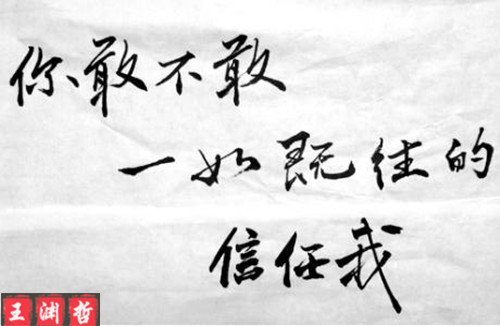 你敢不敢
一如既往的
信任我
王渊哲